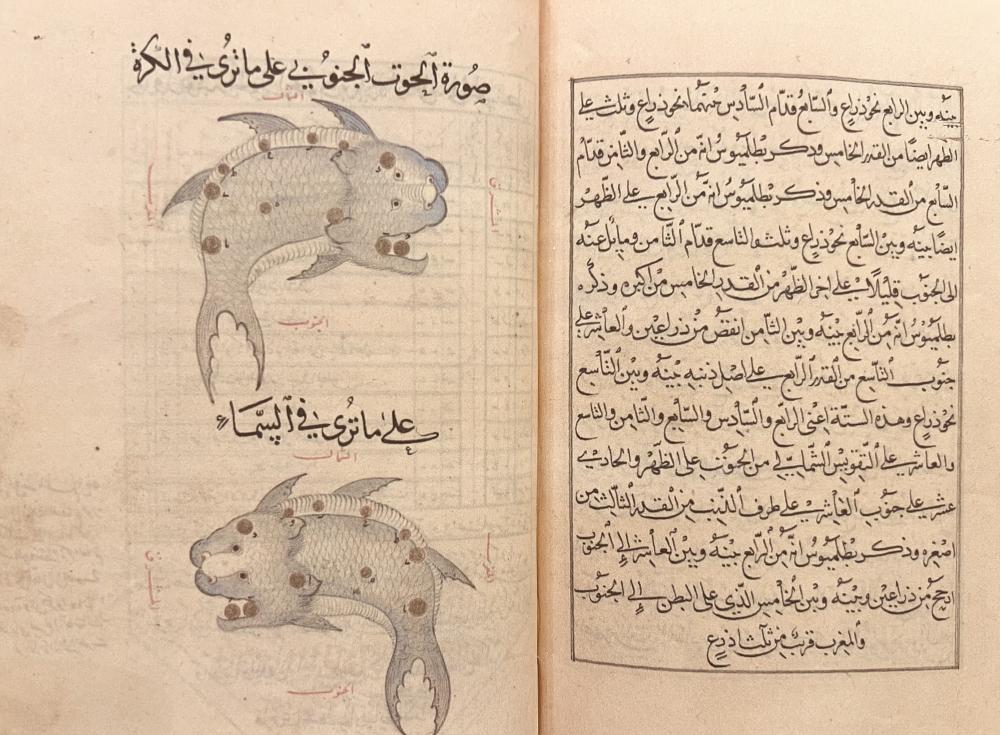 بينه وبين الرابع نحو ذراع والسابع قدام السادس بينهما نحو ذراع وثلث على
الظهر ايضا من القدر الخامس وذكر بطلميوس انه من الرابع والثامن قدام
السابع من القدر الخامس وذكر بطلميوس انه من الرابع على الظهر
ايضا بينه وبين السابع نحو ذراع وثلث والتاسع قدام الثامن ومايل عنه
الى الجنوب قليلا على اخر الظهر من القدر الخامس من اكبره وذكره
بطلميوس انه من الرابع بينه وبين الثامن انقص من ذراعين والعاشر على
جنوب التاسع من القدر الرابع على اصل ذنبه بينه وبين التاسع
نحو ذراع وهذه الستة اعنى الرابع والسادس والسابع والثامن والتاسع
والعاشر على التقويس الشمالى من الحوت على الظهر والحادى
عشر على جنوب العاشر على طرف الذنب من القدر الثالث من
اصغره وذكر بطلميوس انه من الرابع بينه وبين العاشر الى الجنوب
ارجح من ذراعين وبينه وبين الخامس الذى على البطن الى الجنوب
والمغرب قريب من ثلث ذراع
صورة الحوت الجنوبى على ما ترى فى الكرة
الشمال
الجنوب
على ما ترى فى السماء
الشمال
الجنوب